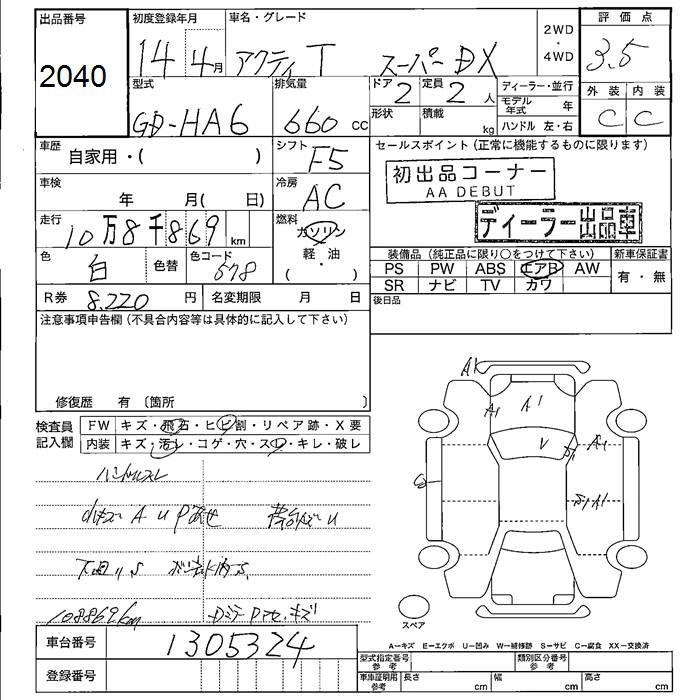 出品番号 初度登録年月 車名・グレード 2WD・4WD 評価点
2040 14年 4月 アクティ T スーパーDX 3.5
型式 排気量 ドア 2 定員 2 人 ディーラー・並行 外装 内装
GD-HA6 660 CC 形状 積載 kg モデル年式 年 C C
ハンドル 左・右
車歴 自家用・( ) シフト F5 セールスポイント(正常に機能するものに限ります)
初出品コーナー
AA DEBUT
車検 年 月( 日) 冷房 AC
ディーラー出品車
走行 10万8千869 km 燃料 ガソリン
軽・油
( ・ )
色 白 色替 色コード 578
装備品(純正品に限り○をつけて下さい) 新車保証書
PS PW ABS エアB AW 有・無
SR ナビ TV カワ
R券 8.220 円 名変期限 月 日 後日品
注意事項申告欄(不具合内容等は具体的に記入して下さい)
修復歴 有 〔箇所 〕
検査員記入欄 FW キズ・飛石・ヒビ割・リペア跡・X要
内装 キズ・汚レ・コゲ・穴・スレ・キレ・破レ
A1
A1 A1
V A1
ハンドルスレ
A U P
下回りS
108869km DミラーPアセ、キズ
スペア
A−キズ E−エクボ U−凹み W−補修跡 S−サビ C−腐食 XX−交換済
車台番号 1305324
登録番号
型式指定番号 参考 類別区分番号 参考
車庫証明用 参考 長さ cm 幅 cm 高さ cm